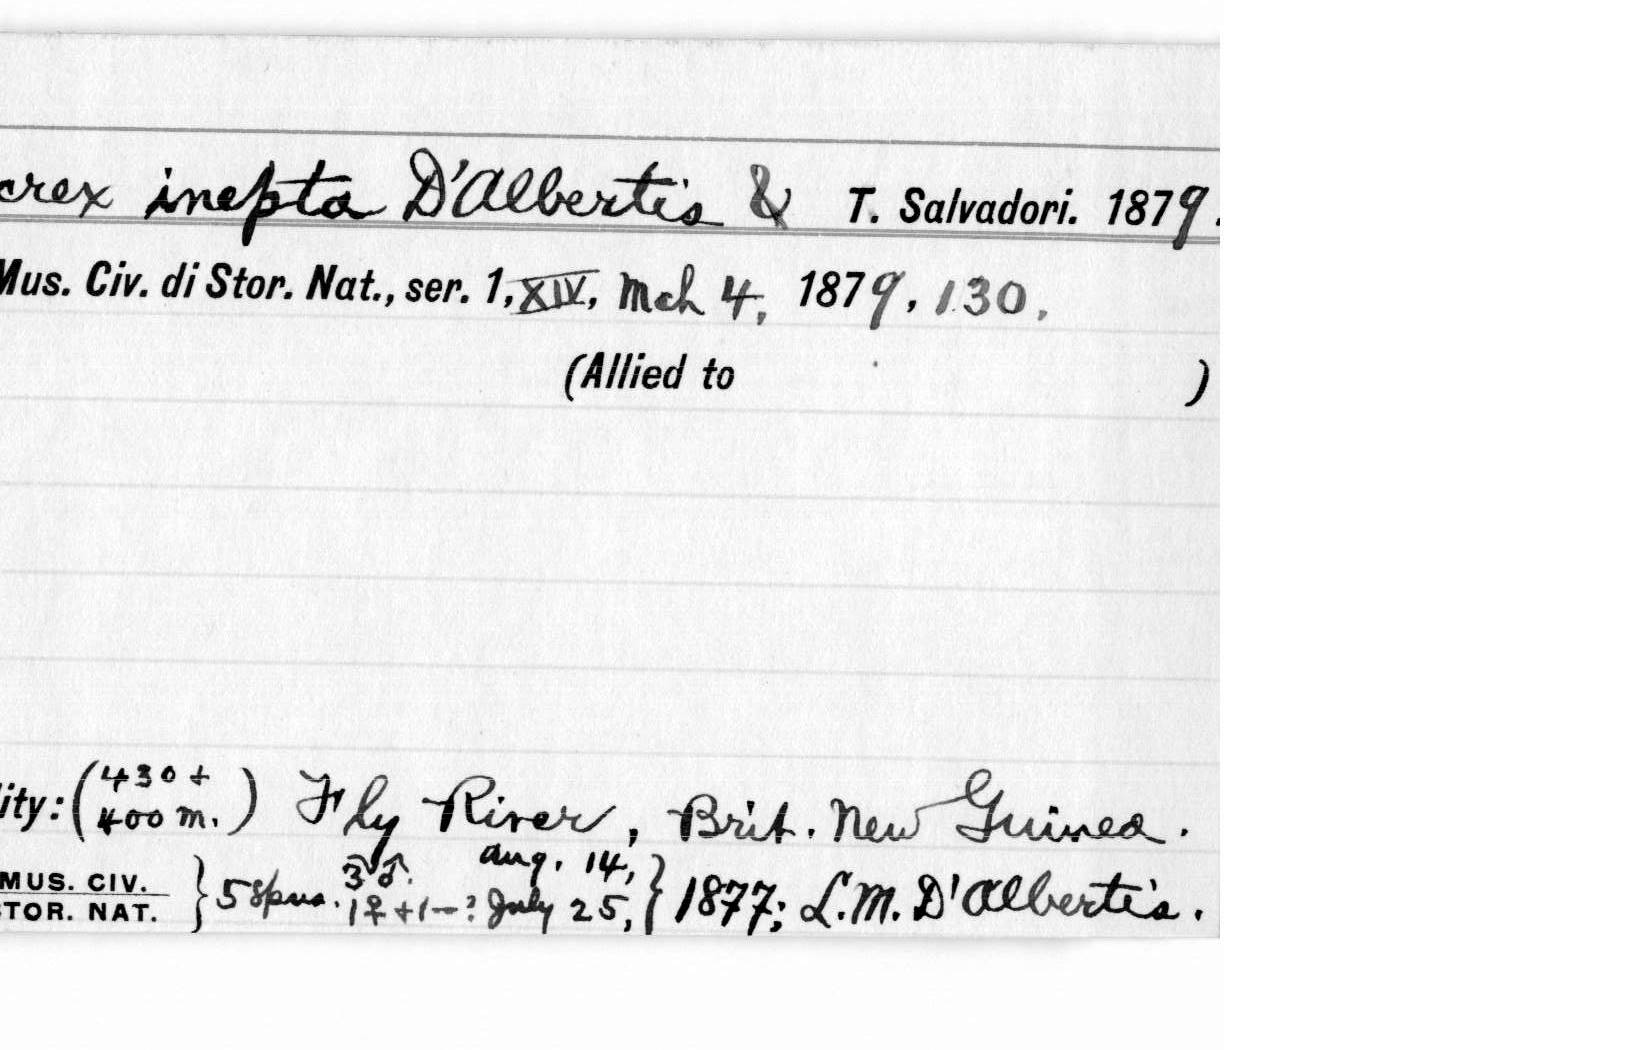 crex inepta D'Albertis & T. Salvadori. 1879.
Mus. Civ. di Stor. Nat., ser. 1, XIV, Mch 4, 1879, 130.
(Allied to )
ity: (430 + 400 m.) Fly River, Brit. New Guinea.
MUS. CIV. TOR. NAT. } 5 spns. 3 ♂. 1 ♀ + 1 — ? Aug. 14, July 25, } 1877; L. M. D'Albertis.